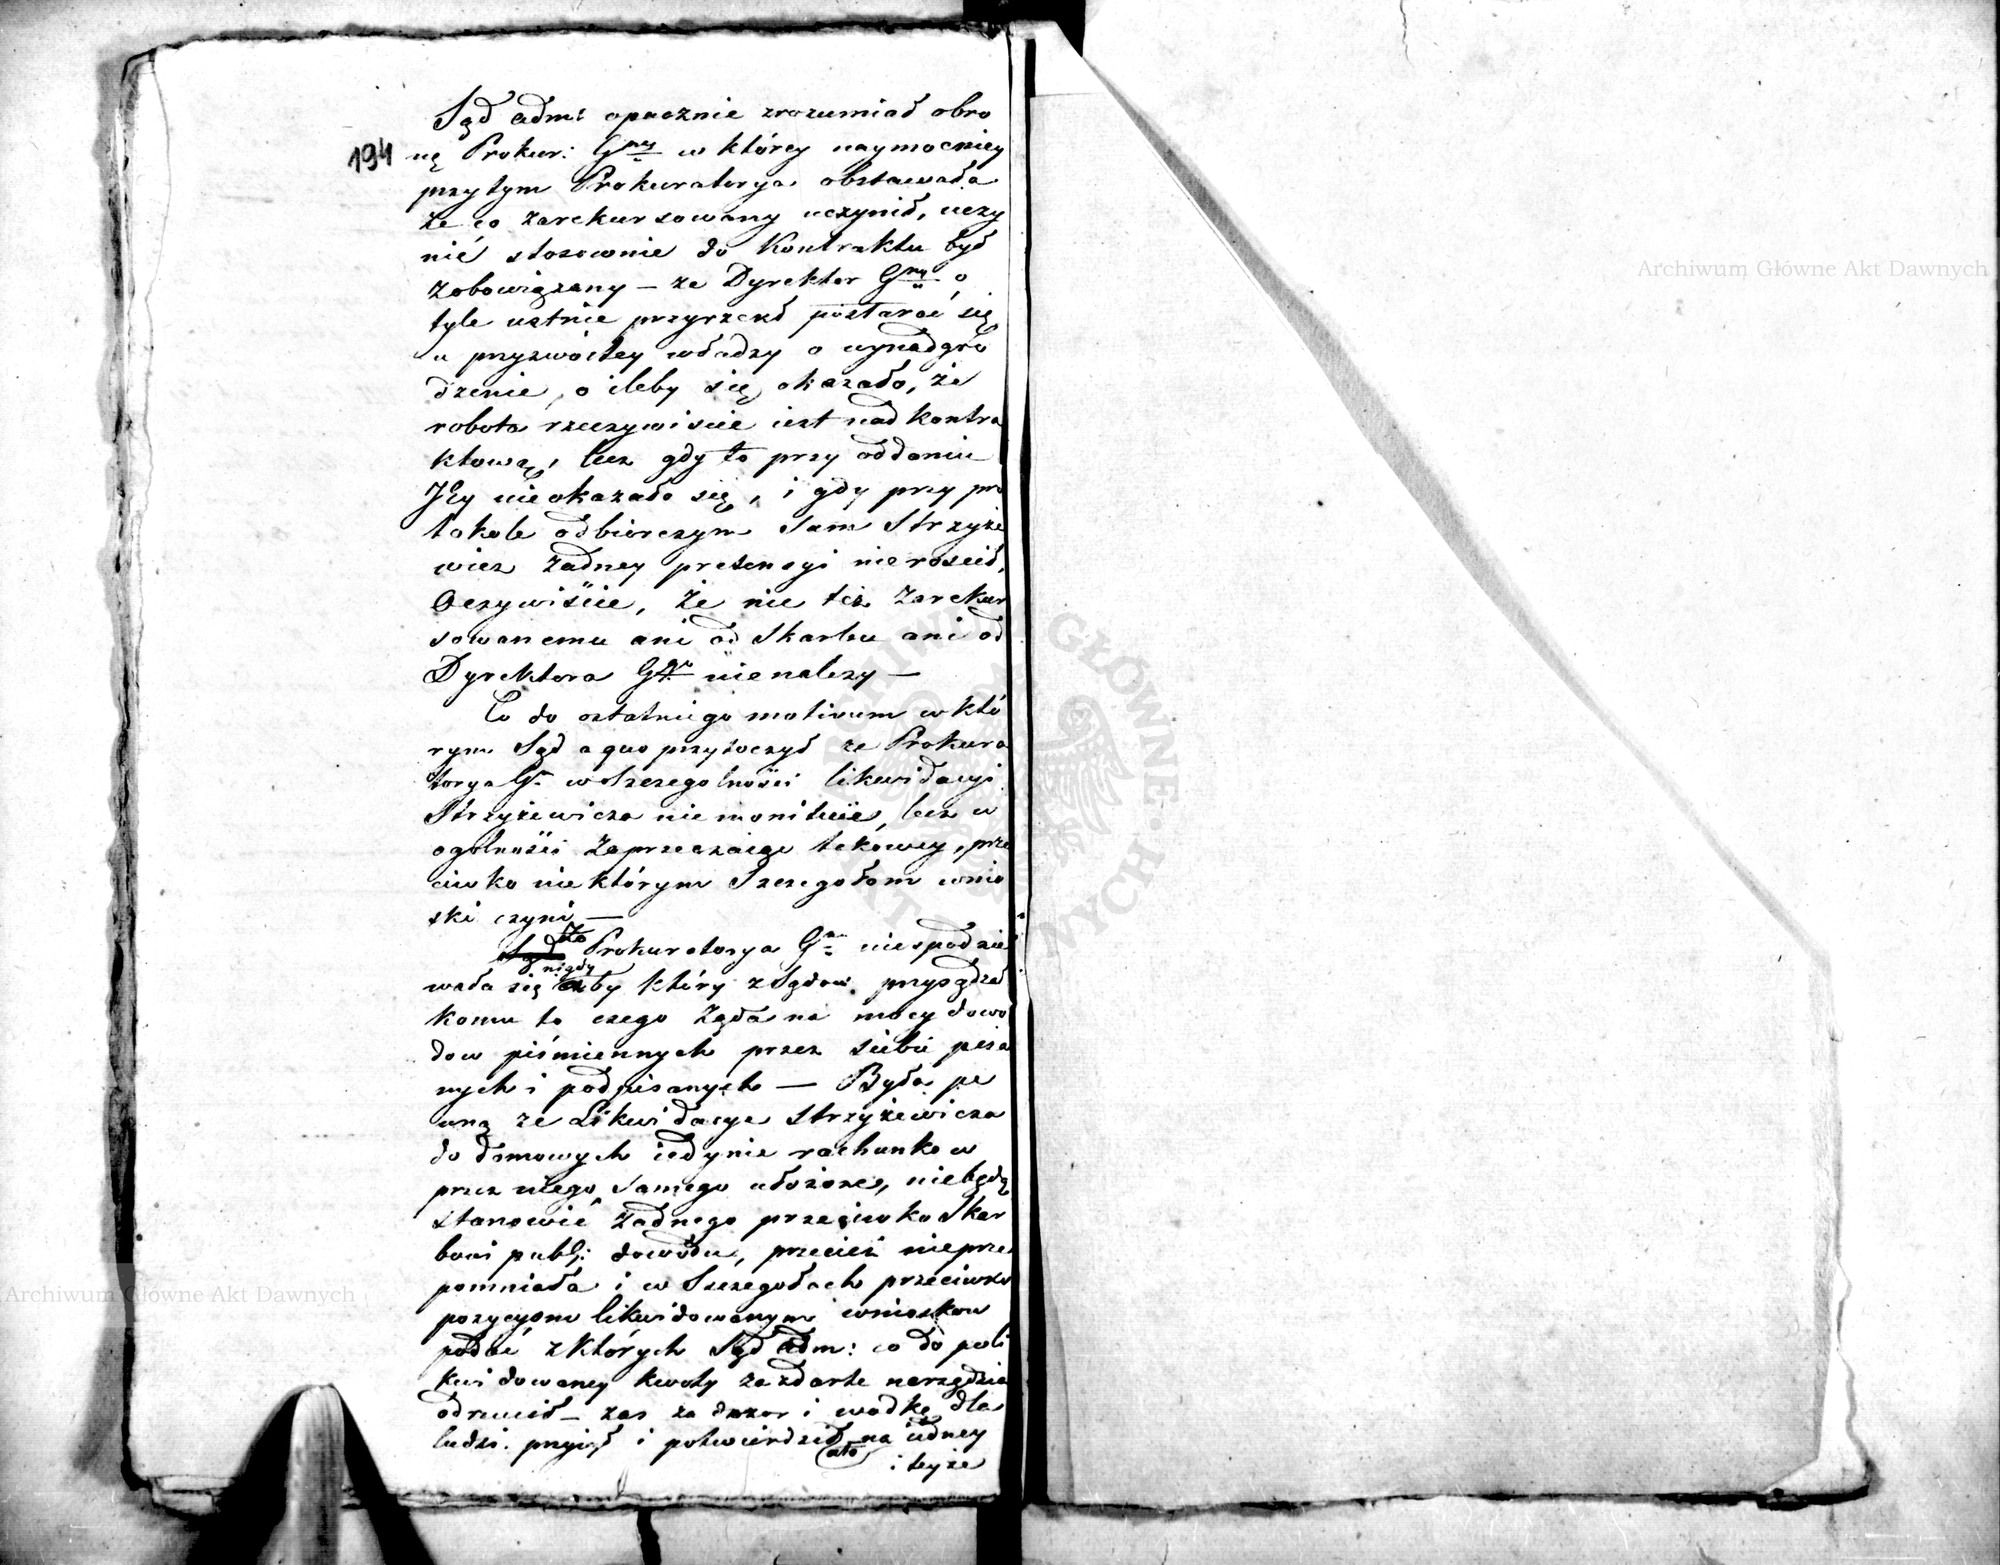 194
Sąd adm: opacznie zrozumiał obro
nę Prokur: Gney w którey naymocniey
przytym Prokuratorya obstawała
że co zarekursowany uczynił, uczy
nić stosownie do Kontraktu był
zobowiązany — że Dyrektor Gny o
tyle ustnie przyrzekł postarać się
u przyzwoitey władzy o wynadgro
dzenie, o ileby się okazało, że
robota rzeczywiście iest nad kontra
ktową, lecz gdy to przy oddaniu
Jey nieokazało się, i gdy przy pro
tokole odbiorczym sam Strzyże
wicz żadney pretensyi nierościł,
Oczywiście, że nic też zarekur
sowanemu ani od Skarbu ani od
Dyrektora Ggo nienależy —
Co do ostatniego motivum w któ
rym Sąd a quo przytoczył że Prokura
torya Gna w Szczegolności likwidacyi
Strzyżewicza nie monituie, lecz w
ogolności zaprzeczaiąc takowey, prze
ciwko niektórym Szczegołom wnio
ski czyni —
To Prokuratorya Gna niespodzie
wała się nigdy by który z Sądow przysądzał
komu to czego żąda na mocy dowo
dow piśmiennych przez siebie pisa
nych i podpisanych — Była pe
wną że Likwidacye Strzyżewicza
do domowych iedynie rachunkow
przez niego samego ułożone, niebędą
stanowić żadnego przeciwko Skar
bowi publ: dowodu, przecież nieprze
pomniała i w Szczegołach przeciwko
pozycyom likwidowanym wnioskow
podać z których Sąd adm: co do poli
kwidowaney kwoty za zdarte narzędzia
odrzucił — zas za dozor i wodkę dla
ludzi przyiął i potwierdził ato na iedney
i teyże
Archiwum Główne Akt Dawnych
Archiwum Główne Akt Dawnych
ARCHIWUM GŁÓWNE AKT DAWNYCH